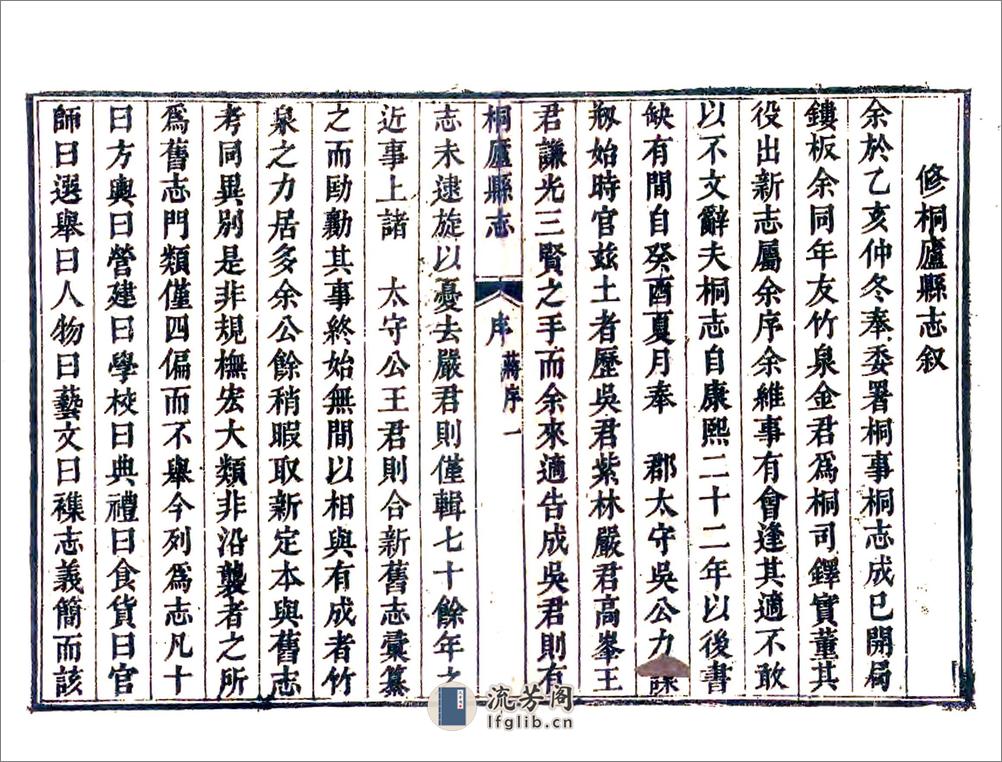 修桐廬縣志叙
余於乙亥仲冬奉委署桐事桐志成已開局
鏤板余同年友竹泉金君爲桐司鐸實董其
役出新志屬余序余維事有會逢其適不敢
以不文辭夫桐志自康熙二十二年以後書
缺有間自癸酉夏月奉 郡太守吳公力
剏始時官兹土者歷吳君紫林嚴君高峯王
君謙光三賢之手而余來適告成吳君則有
桐廬縣志 序 蔣序 一
志未逮旋以憂去嚴君則僅輯七十餘年之
近事上諸 太守公王君則合新舊志彙纂
之而勖勷其事終始無間以相與有成者竹
泉之力居多余公餘稍暇取新定本與舊志
考同異別是非規橅宏大類非沿襲者之所
爲舊志門類僅四偏而不舉今列爲志凡十
曰方輿曰營建曰學校曰典禮曰食貨曰官
師曰選舉曰人物曰藝文曰襍志義簡而該
流芳阁
lfglib.cn